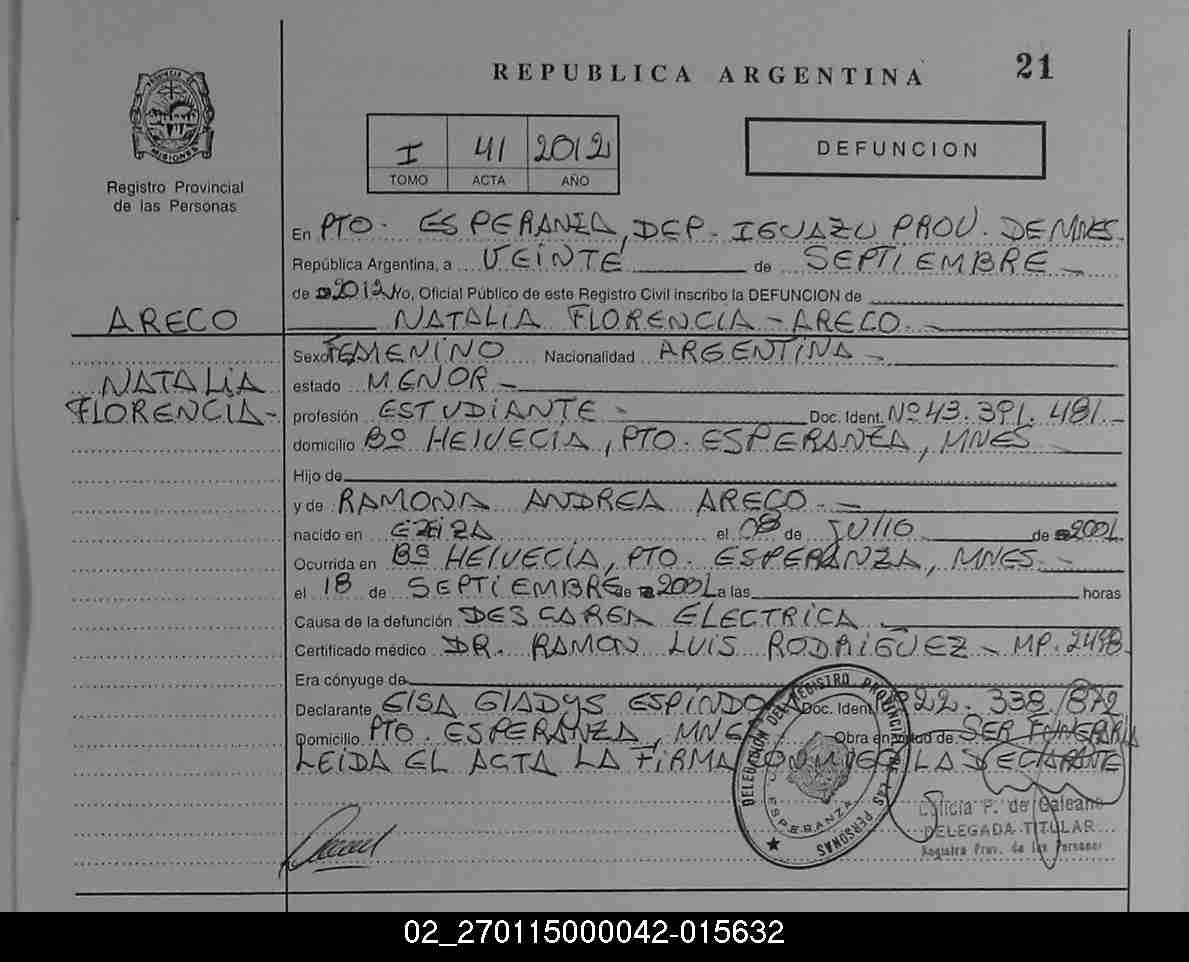 REPUBLICA ARGENTINA
21
PROVINCIA DE
MISIONES
Registro Provincial
de las Personas
I 41 2012
TOMO ACTA AÑO
DEFUNCION
En PTO. ESPERANZA, DEP. IGUAZU PROV. DE MNES.
República Argentina, a VEINTE de SEPTIEMBRE
de 2012 Yo, Oficial Público de este Registro Civil inscribo la DEFUNCION de
ARECO
NATALIA FLORENCIA - ARECO. -
Sexo FEMENINO Nacionalidad ARGENTINA -
NATALIA
estado MENOR -
FLORENCIA -
profesión ESTUDIANTE - Doc. Ident. Nº 43.391.481. -
domicilio Bº HELVECIA, PTO. ESPERANZA, MNES
Hijo de
y de RAMONA ANDREA ARECO. -
nacido en EZEIZA el 08 de JULIO de 2001.
Ocurrida en Bº HELVECIA, PTO. ESPERANZA, MNES. -
el 18 de SEPTIEMBRE de 2001 a las horas
Causa de la defunción DESCARGA ELECTRICA.
Certificado médico DR. RAMON LUIS RODRIGUEZ - MP. 2498
Era cónyuge de
Declarante ELSA GLADYS ESPINDOLA Doc. Ident. 22.338.872
Domicilio PTO. ESPERANZA, MNES Obra en virtud de SER FUNERARIA
LEIDA EL ACTA LA FIRMA CONMIGO LA DECLARANTE
DELEGACION DEL REGISTRO PROVINCIAL DE LAS PERSONAS
ESPERANZA
P. de Galeano
DELEGADA TITULAR
Registro Prov. de las Personas
02_270115000042-015632